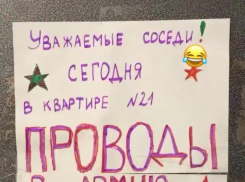 Уважаемые соседи!
СЕГОДНЯ
В КВАРТИРЕ N21
ПРОВОДЫ
В АРМИЮ